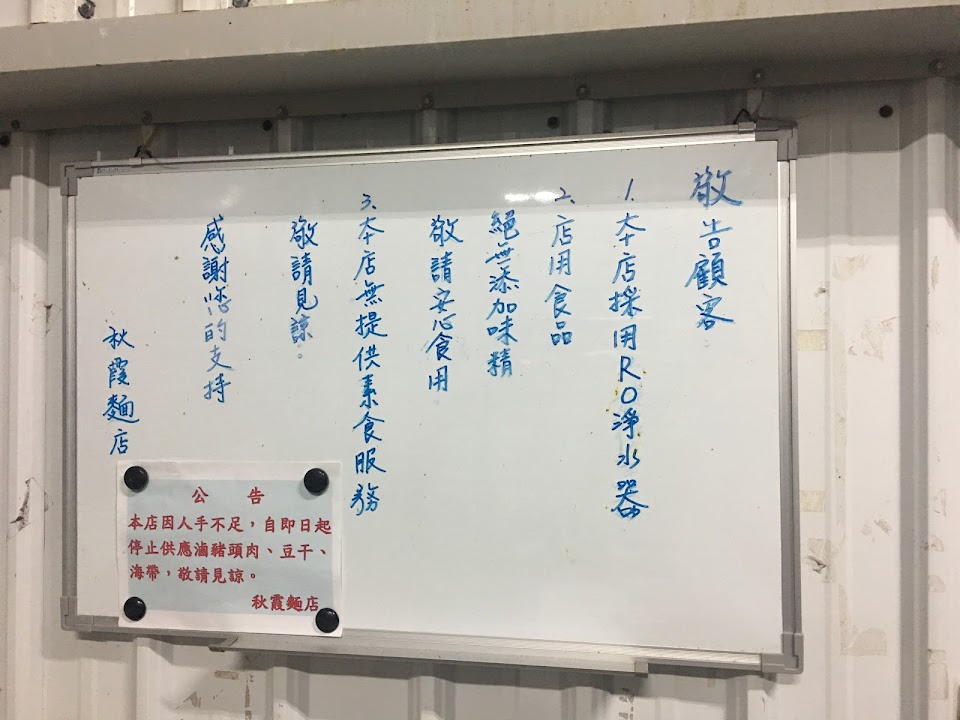 敬告顧客
1.本店採用RO淨水器
2.店用食品
絕無添加味精
敬請安心食用
3.本店無提供素食服務
敬請見諒。
感謝您的支持
秋霞麵店
公 告
本店因人手不足，自即日起
停止供應滷豬頭肉、豆干、
海帶，敬請見諒。
秋霞麵店